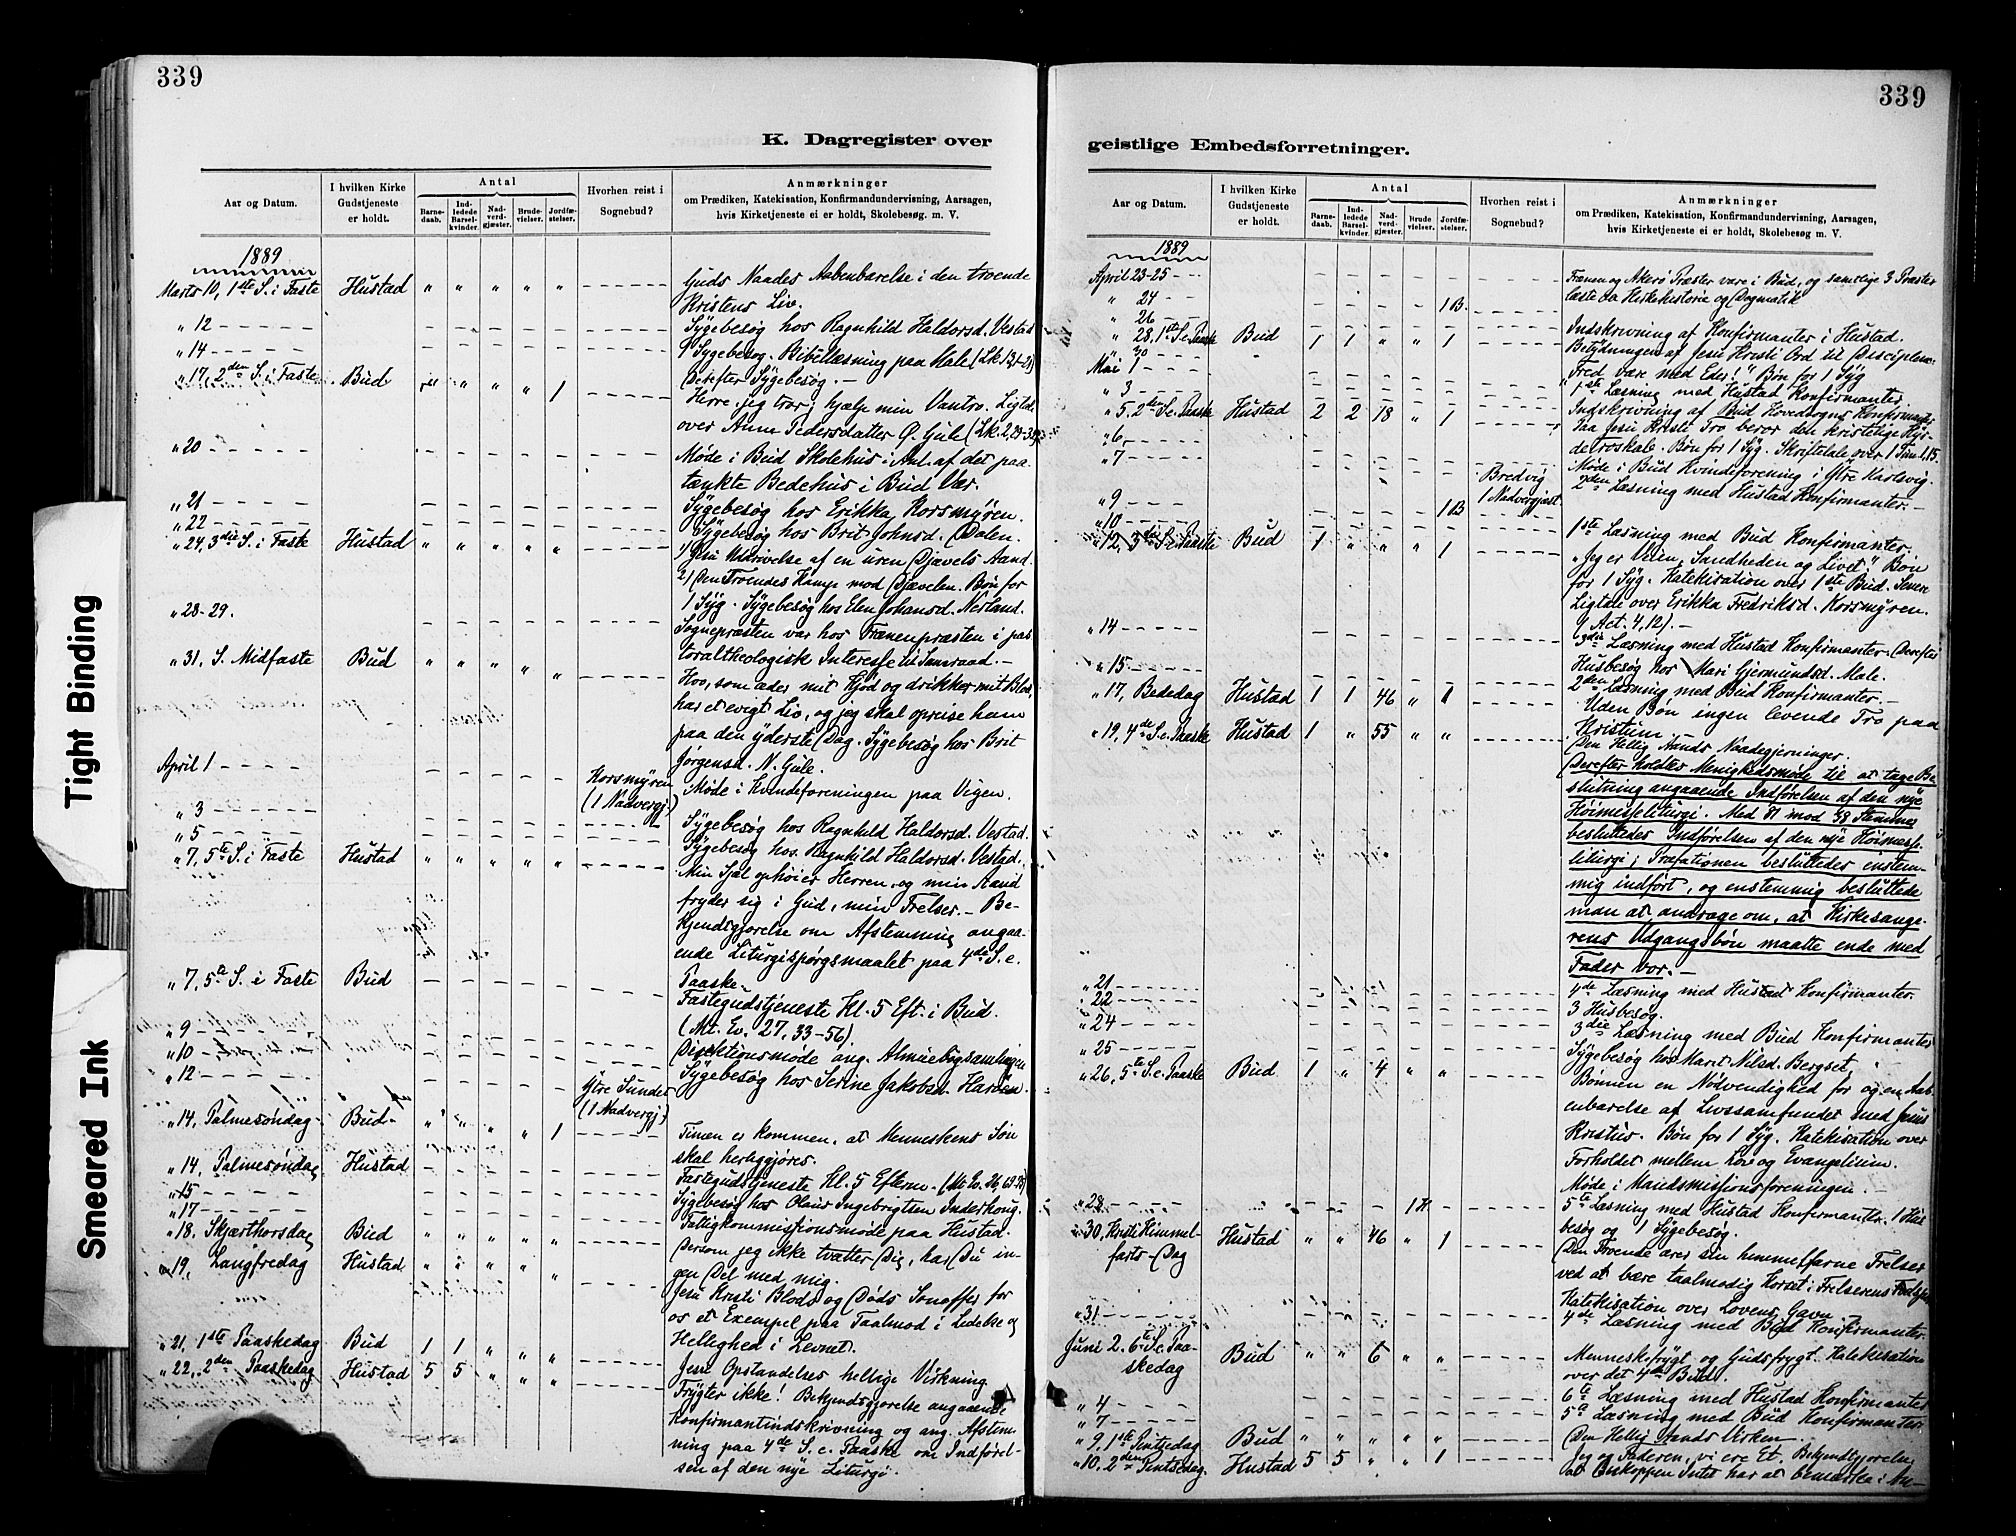 339
K. Dagregister over
Aar og Datum.
I hvilken Kirke
Gudstjeneste
er holdt.
Antal
Barne-
daab.
Ind-
ledede
Barsel-
kvinder.
Nad-
verd-
gjæster.
Brude-
vielser.
Jordfæ-
stelser.
Hvorhen reist i
Sognebud?
Anmærkninger
om Prædiken, Katekisation, Konfirmandundervisning, Aarsagen,
hvis Kirketjeneste ei er holdt, Skolebesøg. m. V.
1889
Marts 10, 1ste S. i Faste Hustad " " " " " Guds Naades Aabenbarelse i den troende
Kristens Liv.
" 12 Sygebesøg hos Ragnhild Haldorsd. Vestad
" 14 Sygebesøg. Bibellæsning paa Male
" 17, 2den S. i Faste Bud " " " " 1 Derefter Sygebesøg. -
Herre, jeg tror, hjælp min Vantro. Ligtale
over Anne Pedersdatter Ø. Gule
" 20 Møde i Bud Skolehus i Anl. af det paa-
tænkte Bedehus i Bud Vær.
" 21 Sygebesøg hos Erikka Korsmyren.
" 22 Sygebesøg hos Brit Johnsd. Dalen.
" 24, 3die S. i Faste Hustad " " " " " 1) Jesu Uddrivelse af en uren Djævels Aand.
2) Den Troendes Kamp mod Djævelen. Bøn for
1 Syg. Sygebesøg hos Elen Johansd. Nerland.
" 28-29. Sognepræsten var hos Frænenpræsten i pas-
toraltheologisk Interesse til Samraad. -
" 31, S. Midfaste Bud " " " " " Hvo, som æder mit Kjød og drikker mit Blod,
har et evigt Liv, og jeg skal opreise ham
paa den yderste Dag. Sygebesøg hos Brit
Jørgensd. N. Gule.
April 1 Korsmyren
(1 Nadvergj.) Møde i Kvindeforeningen paa Vigen.
" 3 Sygebesøg hos Ragnhild Haldorsd. Vestad.
" 5 Sygebesøg hos Ragnhild Haldorsd. Vestad.
" 7, 5te S. i Faste Hustad " " " " " Min Sjæl ophøier Herren, og min Aand
fryder sig i Gud, min Frelser. - Be-
kjendtgjørelse om Afstemning angaa-
ende Liturgispørgsmaalet paa 4de S. e.
Paaske.
" 7, 5te S. i Faste Bud Fastegudstjeneste Kl. 5 Eft. i Bud.
(Mt. Ev. 27, 33-56).
" 9
" 10 Direktionsmøde ang. Almuebogsamlingen
" 12 Ytre Sundet
(1 Nadvergj.) Sygebesøg hos Serine Jakobsd. Harøen.
" 14, Palmesøndag Bud " " " " 1 Timen er kommen, at Menneskens Søn
skal herliggjøres.
" 14, Palmesøndag Hustad Fastegudstjeneste Kl. 5 Efterm.
" 15 Sygebesøg hos Olaus Ingebrigtsen Inderhaug.
" 17 Fattigkommissionsmøde paa Hustad.
" 18. Skjærthorsdag Bud " " " " " Dersom jeg ikke tvætter Dig, har Du in-
gen Del med mig.
" 19, Langfredag Hustad " " " " " Jesu Kristi Blods og Døds Sonoffer for
os et Exempel paa Taalmod i Lidelse og
Hellighed i Levnet.
" 21, 1ste Paaskedag Bud 1 1 " " " Jesu Opstandelses hellige Virkning
" 22, 2den Paaskedag Hustad 5 5 " " " Frygter ikke! Bekjendtgjørelse angaaende
Konfirmantindskrivning og ang. Afstem-
ning paa 4de S. e. Paaske om Indførel-
sen af den nye Liturgi.
339
geistlige Embedsforretninger.
Aar og Datum.
I hvilken Kirke
Gudstjeneste
er holdt.
Antal
Barne-
daab.
Ind-
ledede
Barsel-
kvinder.
Nad-
verd-
gjæster.
Brude
vielser.
Jordfæ-
stelser.
Hvorhen reist i
Sognebud?
Anmærkninger
om Prædiken, Katekisation, Konfirmandundervisning, Aarsagen,
hvis Kirketjeneste ei er holdt, Skolebesøg m. V.
1889
April 23-25 Frænen og Akerø Præster vare i Bud, og samtlige 3 Præster
læste da Kirkehistorie og Dogmatik
" 24 1 B.
" 26 Indskrivning af Konfirmanter i Hustad.
" 28, 1ste S. e. Paaske Bud 1 1 " " 1 Betydningen af Jesu Kristi Ord til Disciplene:
" 30 Fred være med Eder!" Bøn for 1 Syg
Mai 1 1ste Læsning med Hustad Konfirmanter.
" 3 Indskrivning af Bud Hovedsogns Konfirmanter
" 5. 2den S. e. Paaske Hustad 2 2 18 " 1 Paa Jesu Kristi Tro beror den kristelige Hyr-
detroskab. Bøn for 1 Syg. Skriftetale over 1 Tim. 1,15.
" 6, Møde i Bud Kvindeforening i Ytre Karlsvig.
" 7 Bredvig
1 Nadvergjæst 2den Læsning med Hustad Konfirmanter. -
" 9 1 B
" 10 1ste Læsning med Bud Konfirmanter.
" 12, 3die S. e. Paaske Bud 1 " " " 1 "Jeg er Veien, Sandheden og Livet." Bøn
for 1 Syg. Katekisation over 1ste Bud. Senere
Ligtale over Erikka Fredriksd. Korsmyren.
(Act. 4, 12). -
" 14 3die Læsning med Hustad Konfirmanter. Derefter
Husbesøg hos Mari Gjermundsd. Male.
" 15 2den Læsning med Bud Konfirmanter. -
" 17, Bededag Hustad 1 1 46 " 1 Uden Bøn ingen levende Tro paa
Kristum.
" 19, 4de S. e. Paaske Hustad 1 " 55 " " Den Hellig Aands Naadegjerninger.
Derefter holdtes Menighedsmøde til at tage Be-
slutning angaaende Indførelsen af den nye
Høimesseliturgi. Med 81 mod 38 Stemmer
besluttedes Indførelsen af den nye Høimesse-
liturgi; Præfationen besluttedes enstem-
mig indført, og enstemmig besluttede
man at andrage om, at Kirkesange-
rens Udgangsbøn maatte ende med
Fader vor. -
" 21 4de Læsning med Hustad Konfirmanter.
" 22 3 Husbesøg.
" 24 3die Læsning med Bud Konfirmanter
" 25 Sygebesøg hos Marit Nilsd. Bergset.
" 26, 5te S. e. Paaske Bud 1 " 4 " " Bønnen en Nødvendighed for og en Aab-
enbarelse af Livssamfundet med Jesus
Kristus. Bøn for 1 Syg. Katekisation over
Forholdet mellem Lov og Evangelium.
Møde i Mandsmissionsforeningen.
" 28 1 H 5te Læsning med Hustad Konfirmanter. 1 Hus-
besøg og 1 Sygebesøg.
" 30, Kristi Himmel-
farts-Dag Hustad " " 46 " 1 Den Troende ærer sin himmelfarne Frelser
ved at bære taalmodig Korset i Frelserens
Katekisation over Lovens Gavn
" 31 4de Læsning med Bud Konfirmanter.
Juni 2. 6te S. e. Paa-
skedag Bud " " 6 " " Menneskefrygt og Gudsfrygt. Katekisation
over det 4de Bud.
" 4 6te Læsning med Hustad Konfirmanter
" 7 5te Læsning med Bud Konfirmanter.
" 9, 1ste Pintsedag Bud " " " " " Den Hellig Aands Virken.
" 10, 2den Pintsedag. Hustad 5 5 " " 1 Jeg og Faderen, vi ere Et. Bekjendtgjørelse,
at Biskoppen Intet har at bemærke i An-
Tight Binding
Smeared Ink